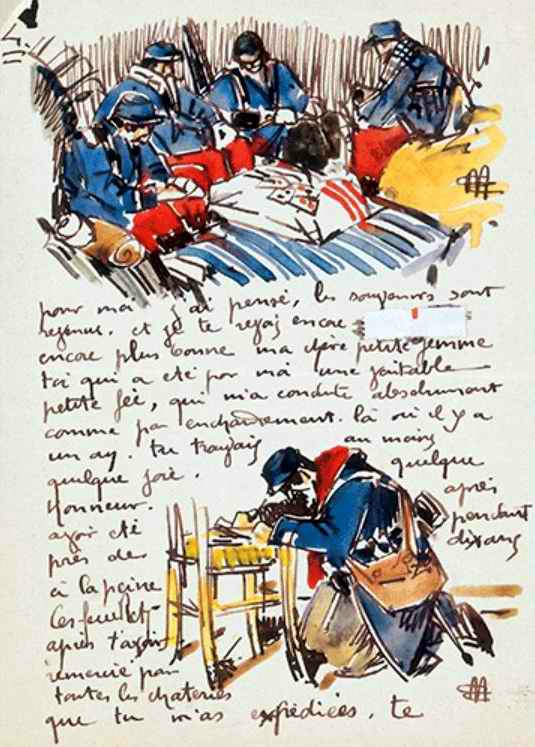 pour moi j'ai pensé, les souvenirs sont
revenus. et je te revois encore
encore plus bonne ma chère petite femme
toi qui a été par moi une véritable
petite fée, qui m'a conduite absolument
comme par enchantement. là où il y a
un an. tu travais au moins
quelque joie. quelque
Honneur. après
avoir été pendant
près de dix ans
à la peine
Ces feuillets
après t'avoir
remercié par
toutes les chateries
que tu m'as expédiées. te